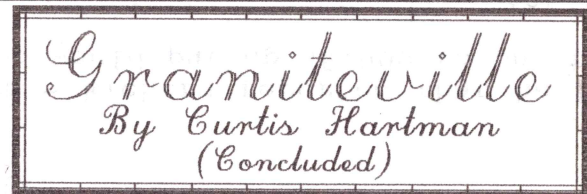 Graniteville
By Curtis Hartman
(Concluded)